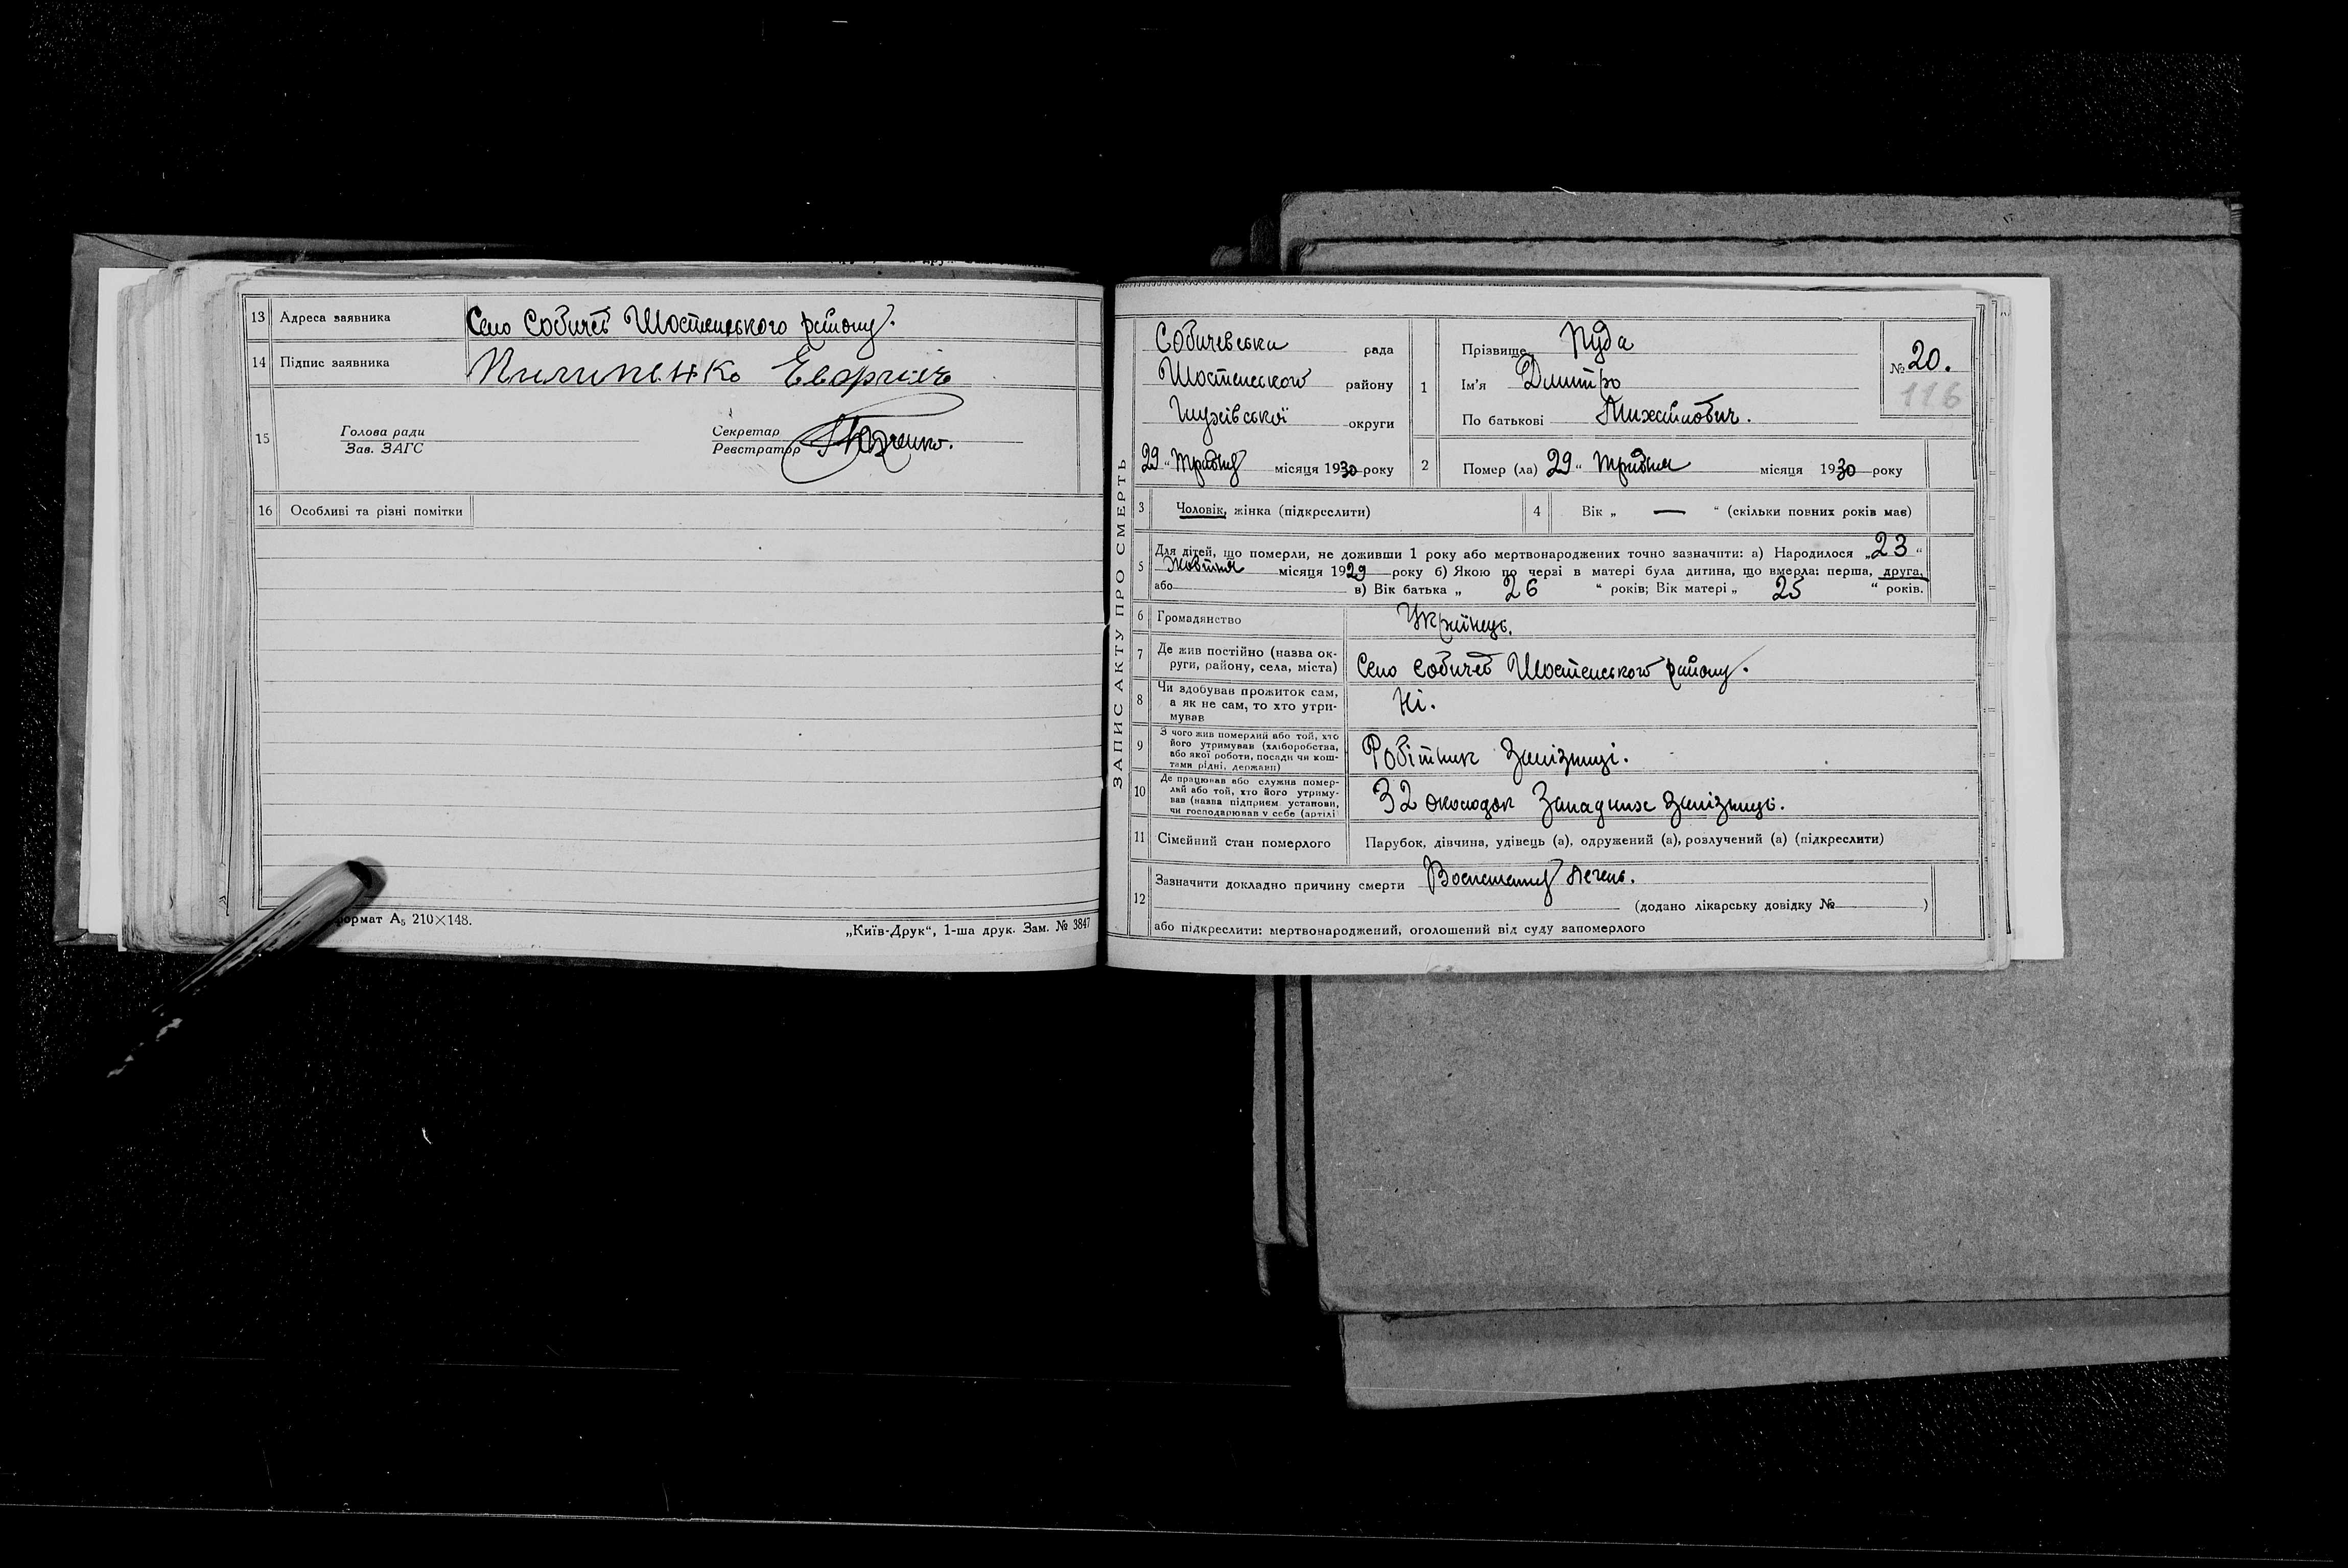 13 Адреса заявника Село Собичев Шостенського району.
14 Підпис заявника Пилипенко
15 Голова ради
Зав. ЗАГС
Секретар
Реєстратор
16 Особливі та різні помітки
формат А5 210×148.
„Київ-Друк“, 1-ша друк. Зам. № 3847
ЗАПИС АКТУ ПРО СМЕРТЬ
Собичевська рада
Шостенського району
округи
29 „ місяця 1930 року
1 Прізвище Пуда
Ім'я Дмитро
По батькові Михайлович.
№ 20.
116
2 Помер (ла) 29 „ місяця 1930 року
3 Чоловік, жінка (підкреслити)
4 Вік „ — “ (скільки повних років має)
5 Для дітей, що померли, не доживши 1 року або мертвонароджених точно зазначити: а) Народилося „23“
Жовтня місяця 1929 року б) Якою по черзі в матері була дитина, що вмерла: перша, друга,
або в) Вік батька „ 26 “ років; Вік матері „ 25 “ років.
6 Громадянство Українець.
7 Де жив постійно (назва ок-
руги, району, села, міста) Село Собичев Шостенського району.
8 Чи здобував прожиток сам,
а як не сам, то хто утри-
мував Ні.
9 З чого жив померлий або той, хто
його утримував (хліборобства,
або якої роботи, посади чи кош-
тами рідні, держави) Робітник Залізниці.
10 Де працював або служив помер-
лий або той, хто його утриму-
вав (назва підприєм. установи,
чи господарював у себе (артілі 32 околодок Западних Залізниці.
11 Сімейний стан померлого Парубок, дівчина, удівець (а), одружений (а), розлучений (а) (підкреслити)
12 Зазначити докладно причину смерти
(додано лікарську довідку № )
або підкреслити: мертвонароджений, оголошений від суду запомерлого